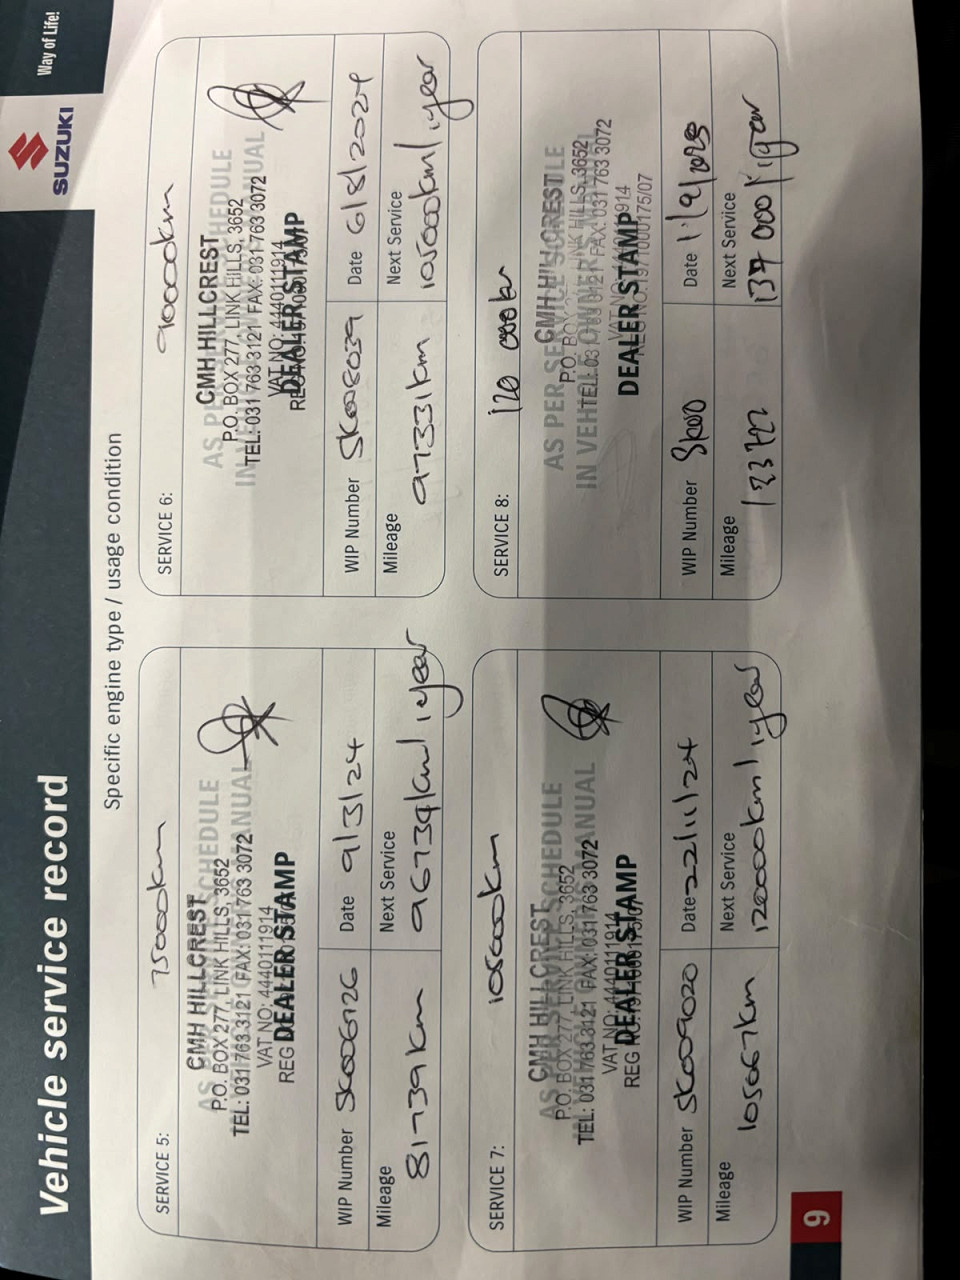 Vehicle service record
SUZUKI
Way of Life!
Specific engine type / usage condition
SERVICE 5: 75000km
AS PER SERVICE SCHEDULE
CMH HILLCREST
P.O. BOX 277, LINK HILLS, 3652
TEL: 031 763 3121 FAX: 031 763 3072
VAT NO: 4440111914
REG
DEALER STAMP
WIP Number SK006726
Date 9/3/24
Mileage 81739km
Next Service 96739km/1year
SERVICE 6: 90000km
AS PER SERVICE SCHEDULE
CMH HILLCREST
P.O. BOX 277, LINK HILLS, 3652
IN VEHICLE OWNER'S MANUAL
TEL: 031 763 3121 FAX: 031 763 3072
VAT NO: 4440111914
DEALER STAMP
WIP Number SK008039
Date 6/8/2024
Mileage 97331km
Next Service 105000km/1year
SERVICE 7: 105000km
CMH HILLCREST
AS PER SERVICE SCHEDULE
P.O. BOX 277, LINK HILLS, 3652
TEL: 031 763 3121 FAX: 031 763 3072
VAT NO: 4440111914
DEALER STAMP
WIP Number SK009020
Date 22/11/24
Mileage 105667km
Next Service 120000km/1year
SERVICE 8: 120 000k
CMH HILLCREST
AS PER SERVICE SCHEDULE
P.O. BOX 277, LINK HILLS, 3652
TEL: 031 763 3121 FAX: 031 763 3072
VAT NO: 4440111914
REG NO: 1971/000175/07
DEALER STAMP
WIP Number
Date 1/9/2025
Mileage
Next Service 137 000/1year
9